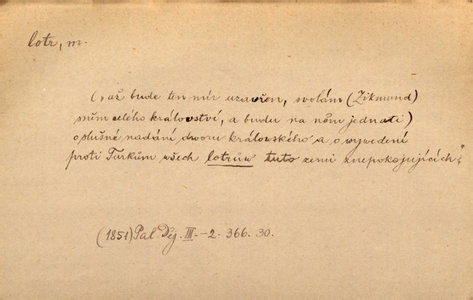 lotr, m.
(„až bude ten mír uzavřen, svolám (Zikmund)
sněm celého království, a budu na něm jednati)
o slušné nadání dvoru královského a o vyvedení
proti Turkům všech lotrův tuto zemi znepokojujících“
(1851) Pal Děj. III.-2. 366. 30.